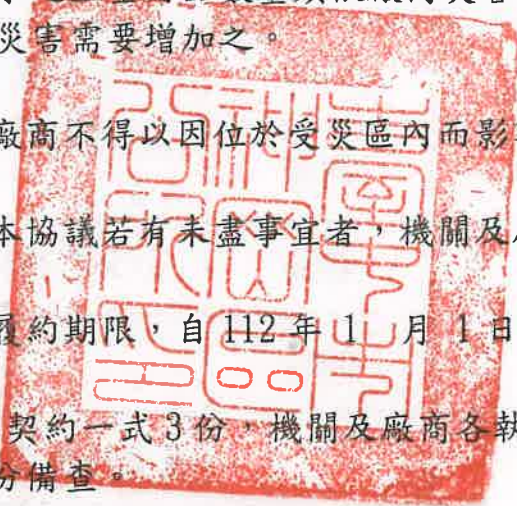 災害需要增加之。
廠商不得以因位於受災區內而影
本協議若有未盡事宜者，機關及
履約期限，自 112 年 1 月 1 日
契約一式 3 份，機關及廠商各執
份備查。
臺中市
神岡區
公所印